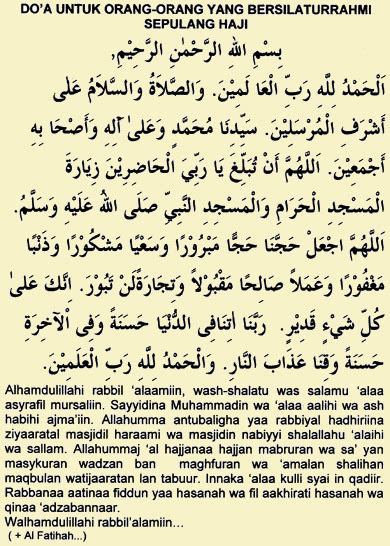 DO'A UNTUK ORANG-ORANG YANG BERSILATURRAHMI
SEPULANG HAJI
بِسْمِ اللهِ الرَّحْمٰنِ الرَّحِيْمِ,
اَلْحَمْدُ لِلّٰهِ رَبِّ الْعَا لَمِيْنَ. وَالصَّلَاةُ وَالسَّلَامُ عَلَى
أَشْرَفِ الْمُرْسَلِيْنَ. سَيِّدِنَا مُحَمَّدٍ وَعَلىٰ آلِهِ وَأَصْحَا بِهِ
أَجْمَعِيْنَ. اَللّٰهُمَّ أَنْ تُبَلِّغَ يَا رَبِّيَ الْحَاضِرِيْنَ زِيَارَةَ
الْمَسْجِدِ الْحَرَامِ وَالْمَسْجِدِ النَّبِيِّ صَلَى اللهُ عَلَيْهِ وَسَلَّمُ.
اَللّٰهُمَّ اجْعَلْ حَجَّنَا حَجًّا مَبْرُوْرًا وَسَعْيًا مَشْكُوْرًا وَذَنْبًا
مَغْفُوْرًا وَعَمَلاً صَالِحًا مَقْبُوْلاً وَتِجَارَةً لَنْ تَبُوْرَ. اِنَّكَ عَلىٰ
كُلِّ شَيْءٍ قَدِيْرٍ. رَبَّنَا اٰتِنَافِى الدُّنْيَا حَسَنَةً وَفِى الْآخِرَةِ
حَسَنَةً وَقِنَا عَذَابَ النَّارِ. وَالْحَمْدُ لِلّٰهِ رَبِّ الْعٰلَمِيْنَ.
Alhamdulillahi rabbil 'alaamiin, wash-shalatu was salamu 'alaa
asyrafil mursaliin. Sayyidina Muhammadin wa 'alaa aalihi wa ash
habihi ajma'iin. Allahumma antubaligha yaa rabbiyal hadhiriina
ziyaaratal masjidil haraami wa masjidin nabiyyi shalallahu 'alaihi
wa sallam. Allahummaj 'al hajjanaa hajjan mabruran wa sa' yan
masykuran wadzan ban maghfuran wa 'amalan shalihan
maqbulan watijaaratan lan tabuur. Innaka 'alaa kulli syai in qadiir.
Rabbanaa aatinaa fiddun yaa hasanah wa fil aakhirati hasanah wa
qinaa 'adzabannaar.
Walhamdulillahi rabbil'alamiin...
( + Al Fatihah...)